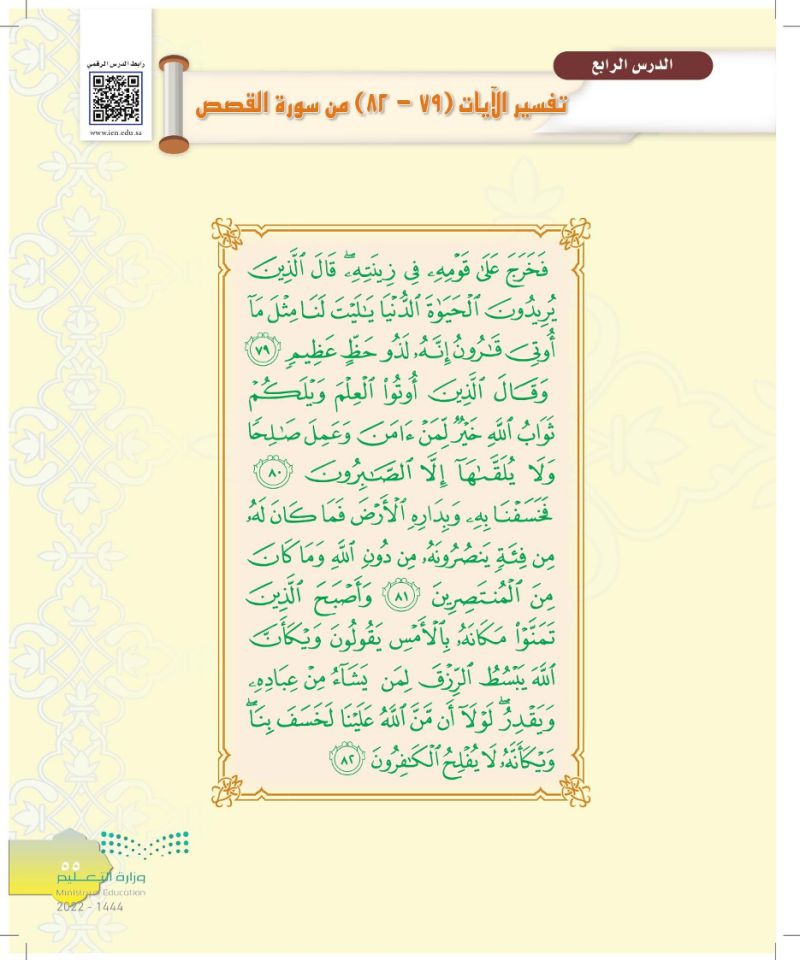 الدرس الرابع
رابط الدرس الرقمي
www.ien.edu.sa
تفسير الآيات (٧٩ - ٨٢) من سورة القصص
فَخَرَجَ عَلَىٰ قَوْمِهِۦ فِي زِينَتِهِۦۖ قَالَ ٱلَّذِينَ
يُرِيدُونَ ٱلْحَيَوٰةَ ٱلدُّنْيَا يَٰلَيْتَ لَنَا مِثْلَ مَآ
أُوتِيَ قَٰرُونُ إِنَّهُۥ لَذُو حَظٍّ عَظِيمٖ ٧٩
وَقَالَ ٱلَّذِينَ أُوتُوا۟ ٱلْعِلْمَ وَيْلَكُمْ
ثَوَابُ ٱللَّهِ خَيْرٞ لِّمَنْ ءَامَنَ وَعَمِلَ صَٰلِحٗا
وَلَا يُلَقَّىٰهَآ إِلَّا ٱلصَّٰبِرُونَ ٨٠
فَخَسَفْنَا بِهِۦ وَبِدَارِهِ ٱلْأَرْضَ فَمَا كَانَ لَهُۥ
مِن فِئَةٖ يَنصُرُونَهُۥ مِن دُونِ ٱللَّهِ وَمَا كَانَ
مِنَ ٱلْمُنتَصِرِينَ ٨١ وَأَصْبَحَ ٱلَّذِينَ
تَمَنَّوْا۟ مَكَانَهُۥ بِٱلْأَمْسِ يَقُولُونَ وَيْكَأَنَّ
ٱللَّهَ يَبْسُطُ ٱلرِّزْقَ لِمَن يَشَآءُ مِنْ عِبَادِهِۦ
وَيَقْدِرُۖ لَوْلَآ أَن مَّنَّ ٱللَّهُ عَلَيْنَا لَخَسَفَ بِنَاۖ
وَيْكَأَنَّهُۥ لَا يُفْلِحُ ٱلْكَٰفِرُونَ ٨٢
٥٥
وزارة التعليم
Ministry of Education
2022 - 1444